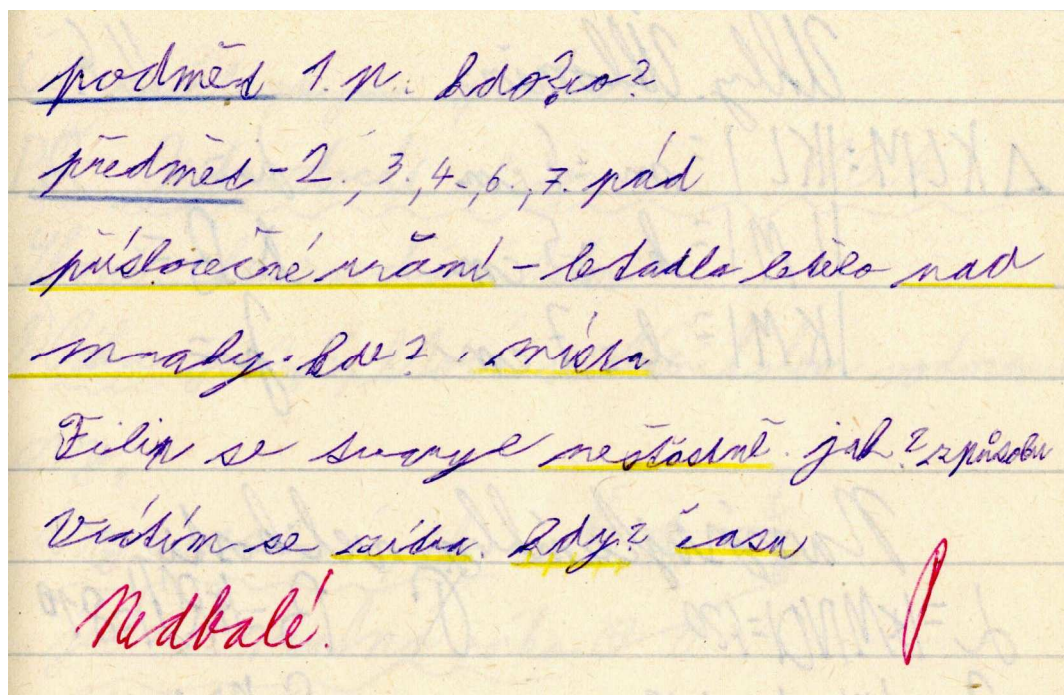 podmět 1. p. kdo? co?
předmět - 2., 3., 4., 6., 7. pád
příslovečné určení - letadla letělo nad
mraky. kde? . místa
Filip se tvaryl nešťastně. jak? způsobu
Vrátím se zítra. kdy? času
Nedbalé.